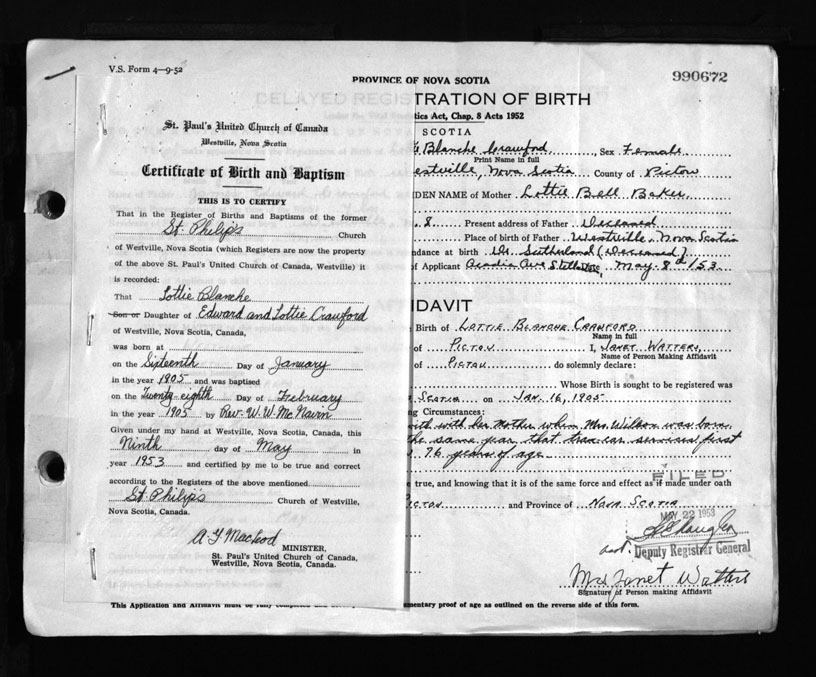 V.S. Form 4—9-52
990672
PROVINCE OF NOVA SCOTIA
DELAYED REGISTRATION OF BIRTH
tics Act, Chap. 8 Acts 1952
St. Paul's United Church of Canada
Westville, Nova Scotia
Certificate of Birth and Baptism
THIS IS TO CERTIFY
That in the Register of Births and Baptisms of the former
St. Philip's Church
of Westville, Nova Scotia (which Registers are now the property
of the above St. Paul's United Church of Canada, Westville) it
is recorded:
That Lottie Blanche
Son or Daughter of Edward and Lottie Crawford
of Westville, Nova Scotia, Canada,
was born at
on the Sixteenth Day of January
in the year 1905 and was baptised
on the Twenty-eighth Day of February
in the year 1905 by Rev. W. W. McNairn
Given under my hand at Westville, Nova Scotia, Canada, this
Ninth day of May in
year 1953 and certified by me to be true and correct
according to the Registers of the above mentioned
St. Philip's Church of Westville,
Nova Scotia, Canada.
A. F. MacLeod
MINISTER,
St. Paul's United Church of Canada,
Westville, Nova Scotia, Canada.
SCOTIA
Blanche Crawford, Sex Female
Print Name in full
estville, Nova Scotia County of Pictou
IDEN NAME of Mother Lottie Bell Baker
8 Present address of Father Deceased
Place of birth of Father Westville, Nova Scotia
ndance at birth Dr Sutherland (Deceased)
of Applicant Acadia Ave Date May 8th/53
IDAVIT
Birth of LOTTIE BLANCHE CRAWFORD
Name in full
of PICTOU I, JANET WATTERS
Name of Person Making Affidavit
of PICTOU do solemnly declare:
Whose Birth is sought to be registered was
SCOTIA on JAN. 16, 1905
ng Circumstances:
with with her Mother when Mrs Wilson was born
the same year that tram car services first
76 years of age
FILED
e true, and knowing that it is of the same force and effect as if made under oath
PICTOU and Province of NOVA SCOTIA
MAY 22 1953
Deputy Registrar General
Mrs Janet Watters
Signature of Person making Affidavit
This Application and Affidavit must be fully completed and mentary proof of age as outlined on the reverse side of this form.